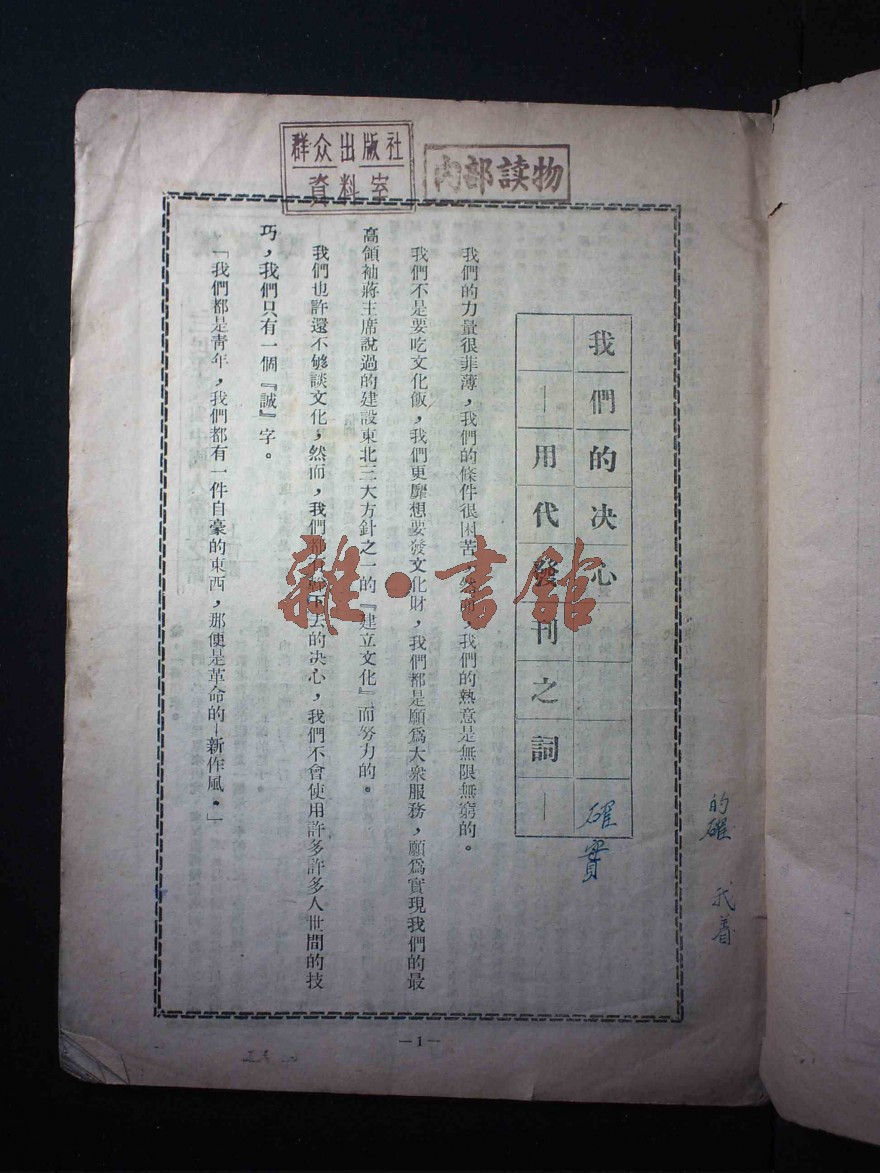 群众出版社
資料室
内部读物
我們的决心
—用代發刊之詞—
確實
的確
我們的力量很菲薄，我們的條件很困苦，然而，我們的熱意是無限無窮的。
我們不是要吃文化飯，我們更靡想要發文化財，我們都是願爲大衆服務，願爲實現我們的最
高領袖蔣主席說過的建設東北三大方針之一的『建立文化』而努力的。
我們也許還不够談文化，然而，我們都有幹下去的决心，我們不會使用許多許多人世間的技
巧，我們只有一個『誠』字。
「我們都是青年，我們都有一件自豪的東西，那便是革命的—新作風。」
—1—
雜·書館